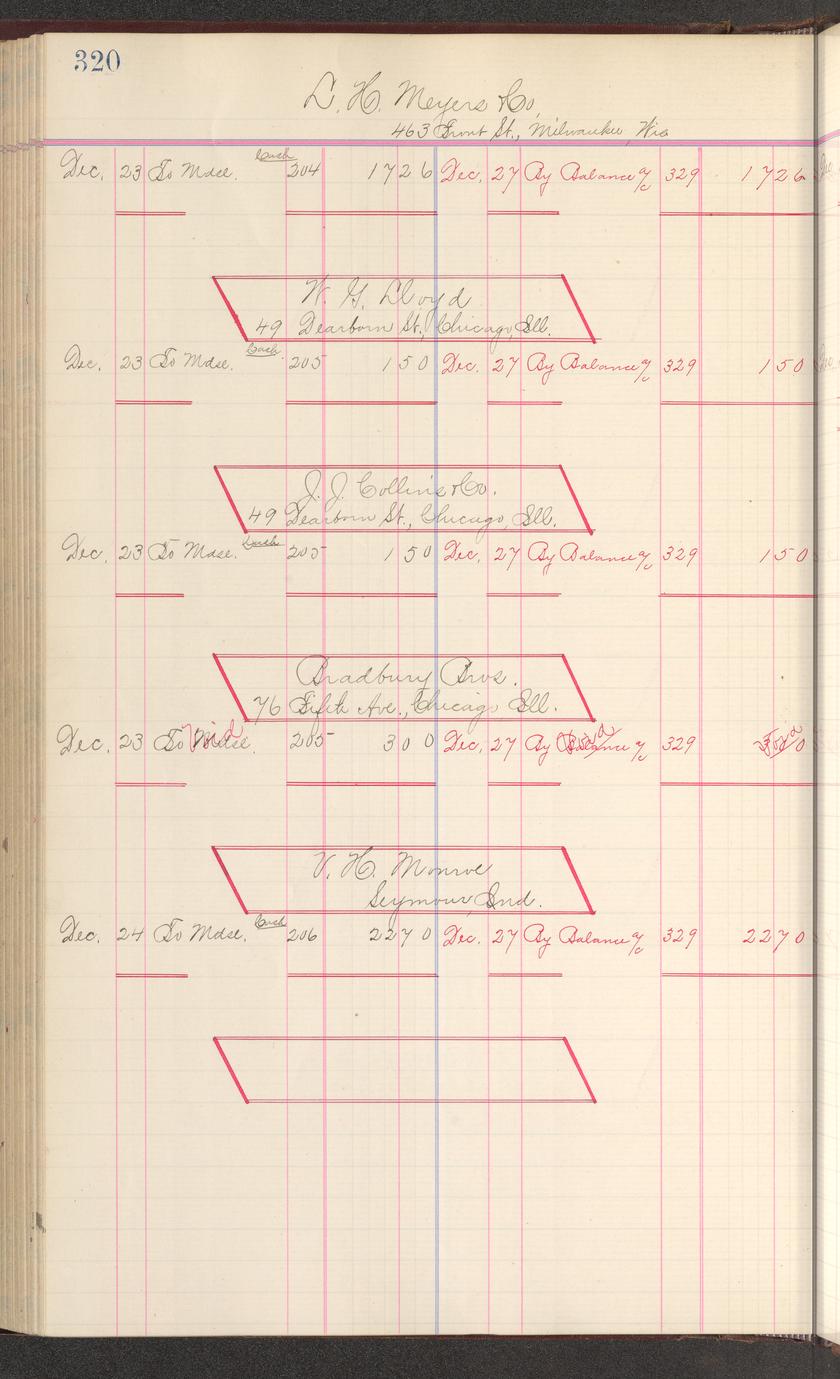 320
L. H. Meyers & Co,
463 Front St., Milwaukee, Wis
Dec. 23 To Mdse. Cash 204 1726 Dec. 27 By Balance a/c 329 1726
W. G. Lloyd
49 Dearborn St., Chicago, Ill.
Dec. 23 To Mdse. Cash. 205 150 Dec. 27 By Balance a/c 329 150
J. J. Collins & Co.
49 Dearborn St., Chicago, Ill.
Dec. 23 To Mdse. Cash 205 150 Dec. 27 By Balance a/c 329 150
Bradbury Bros.
76 Fifth Ave., Chicago Ill.
Dec. 23 To Mdse. Void 205 300 Dec. 27 By Balance Void a/c 329 300 Void
V. H. Monroe
Seymour, Ind.
Dec. 24 To Mdse. Cash 206 2270 Dec. 27 By Balance a/c 329 2270